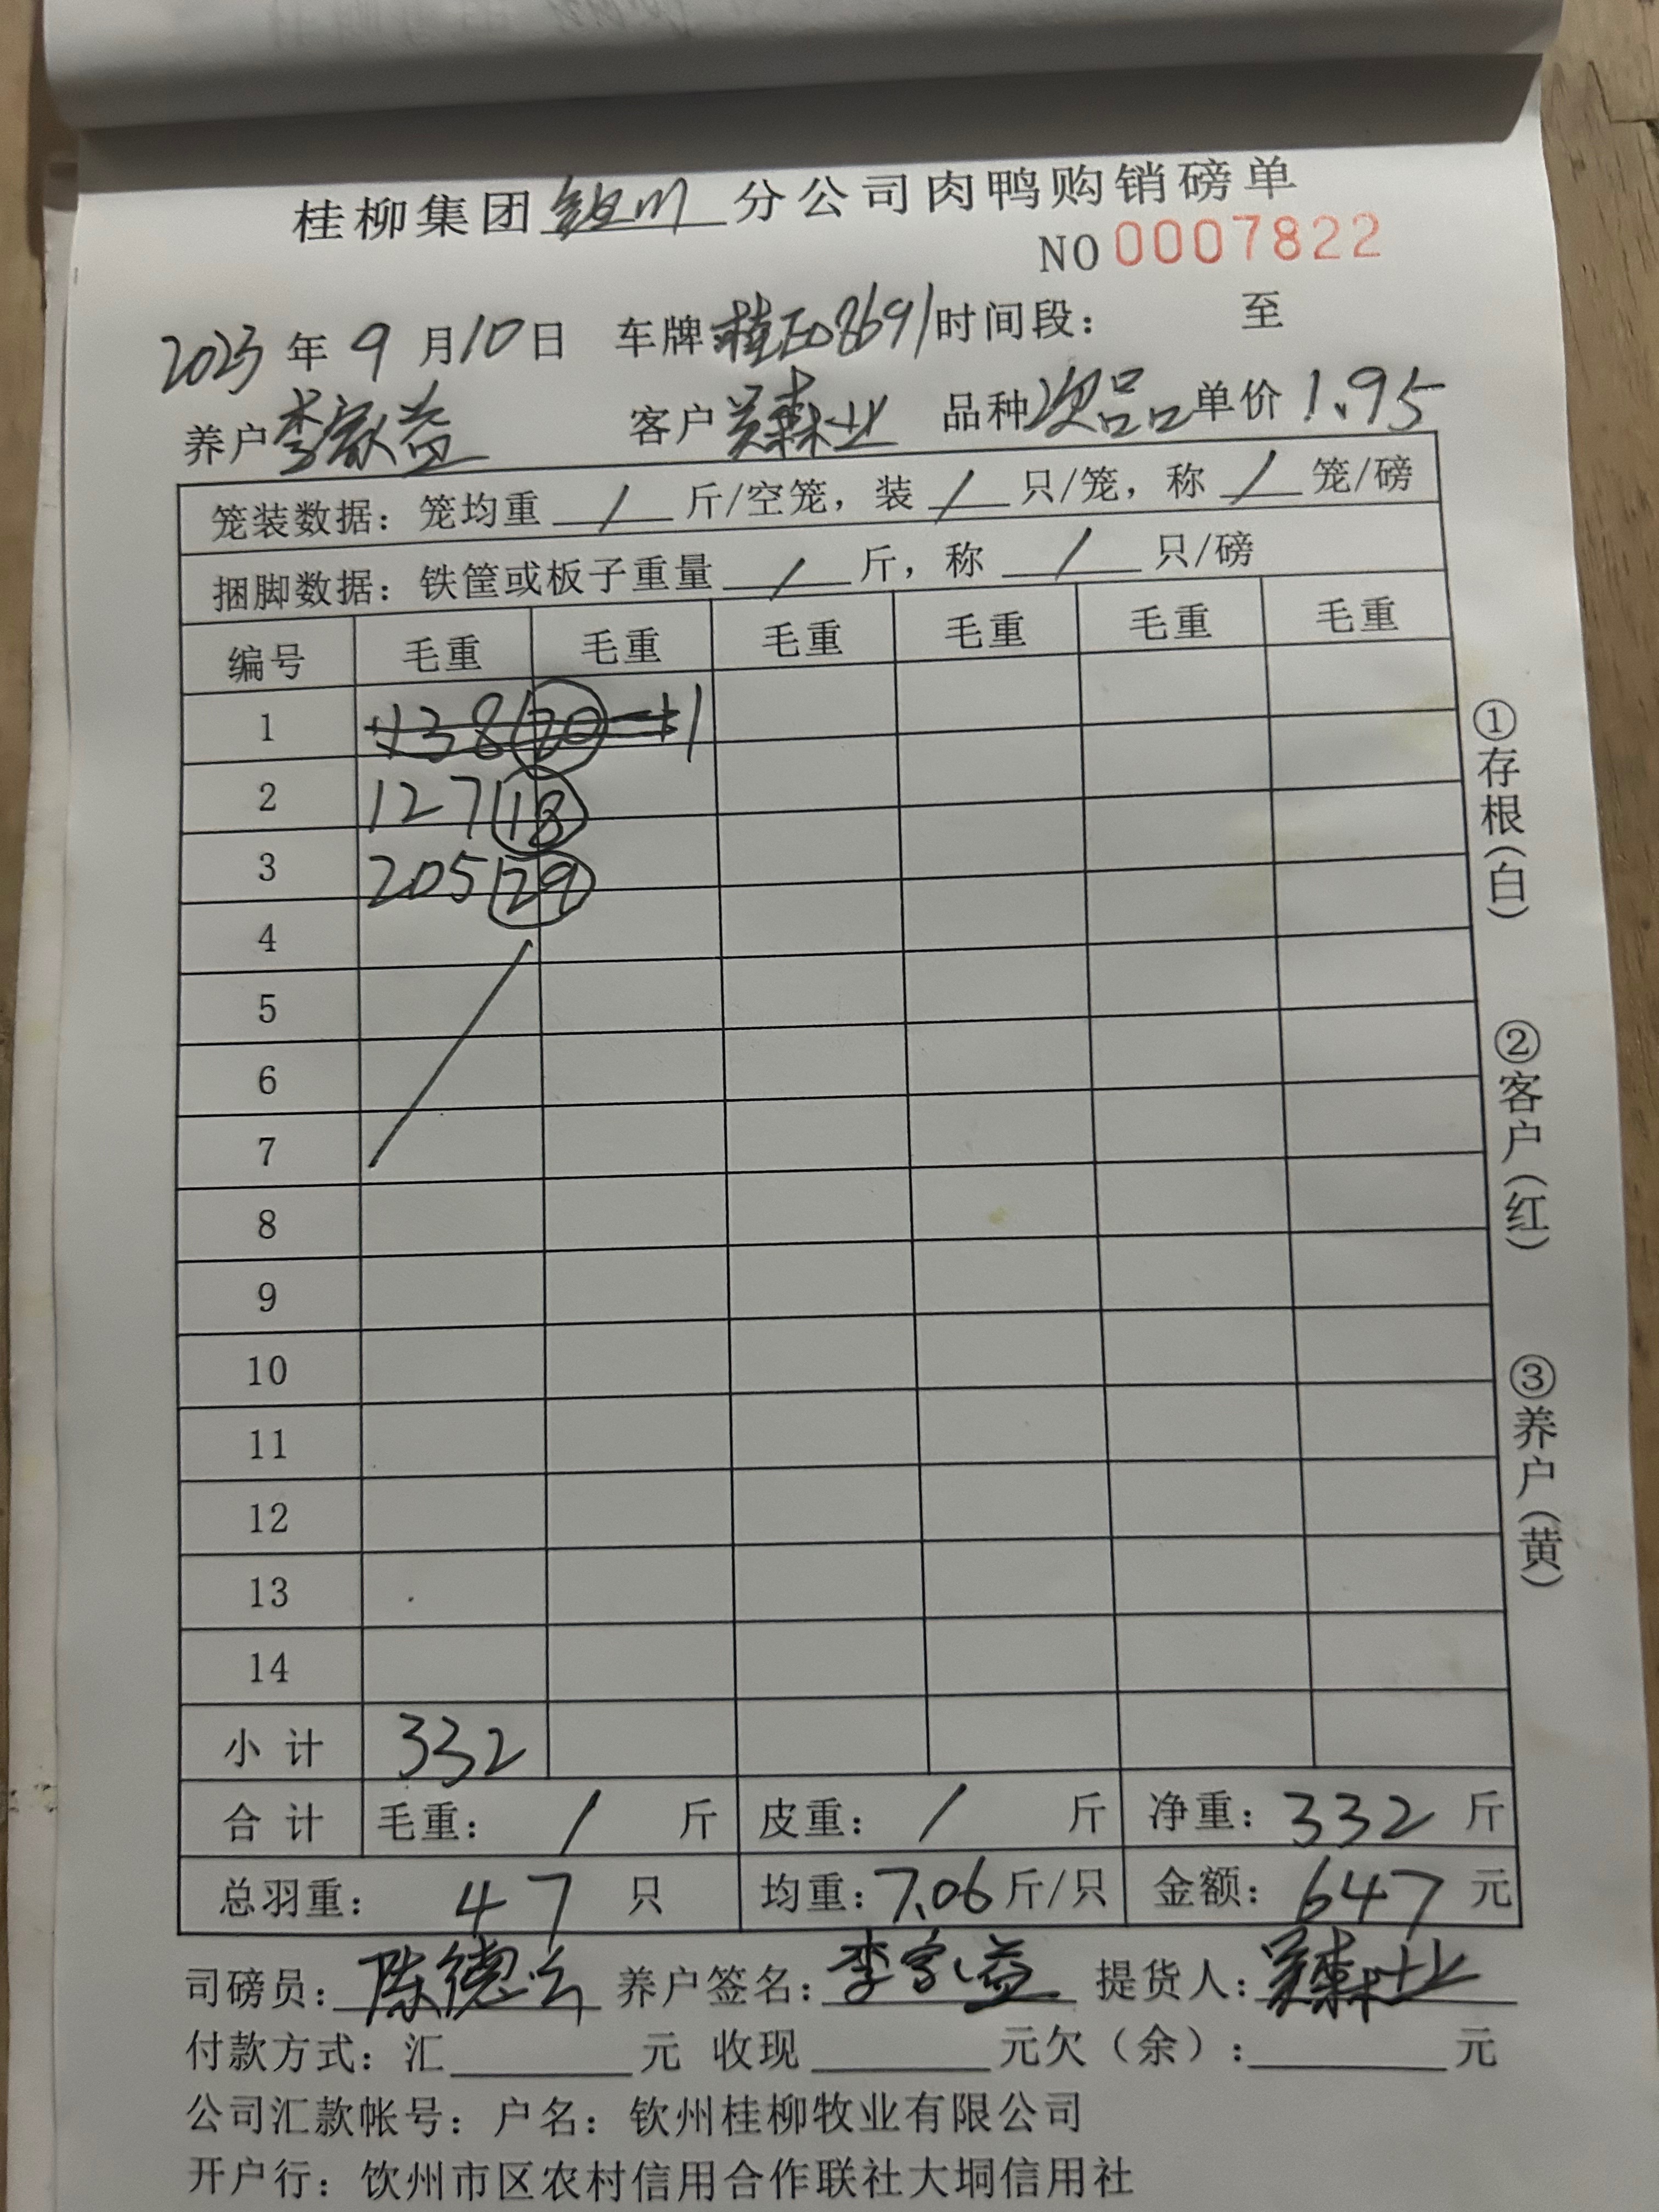 桂柳集团 分公司肉鸭购销磅单
NO 0007822
2023年9月10日 车牌桂E08691时间段： 至
养户李家益 客户 业 品种次品 单价1.95
笼装数据：笼均重 / 斤/空笼，装 / 只/笼，称 / 笼/磅
捆脚数据：铁筐或板子重量 / 斤，称 / 只/磅
编号 毛重 毛重 毛重 毛重 毛重 毛重
1 138 20
2 127 18
3 205 29
4
5
6
7
8
9
10
11
12
13
14
小计 332
合计 毛重： / 斤 皮重： / 斤 净重：332斤
总羽重：47只 均重：7.06斤/只 金额：647元
司磅员：陈德云 养户签名：李家益 提货人： 业
付款方式：汇 元 收现 元欠（余）： 元
公司汇款帐号：户名：钦州桂柳牧业有限公司
开户行：饮州市区农村信用合作联社大垌信用社
①存根（白）
②客户（红）
③养户（黄）